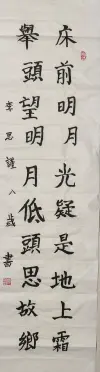 床前明月光疑是地上霜
舉頭望明月低頭思故鄉
李思謹八歲書